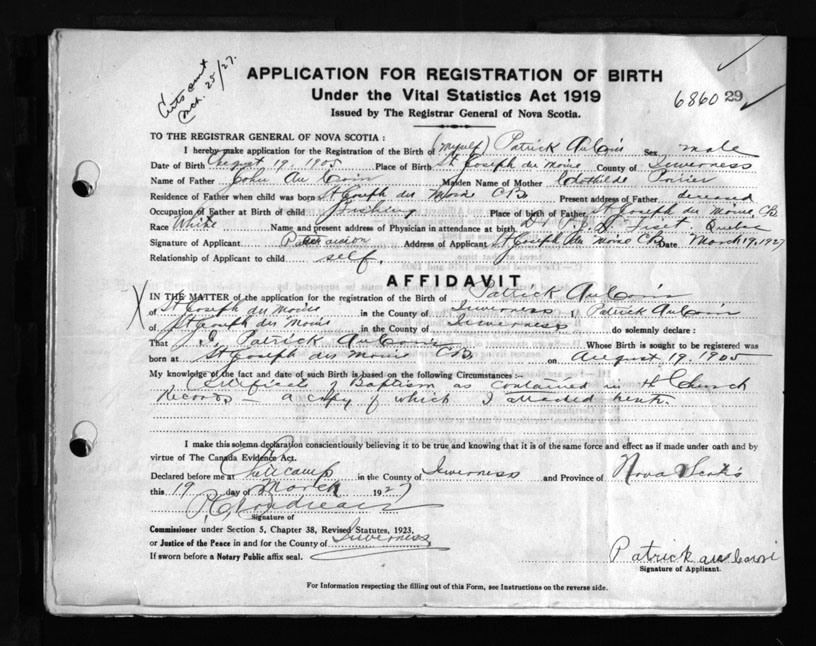 Mch. 25/27.
APPLICATION FOR REGISTRATION OF BIRTH
Under the Vital Statistics Act 1919
Issued by The Registrar General of Nova Scotia.
6860 29
TO THE REGISTRAR GENERAL OF NOVA SCOTIA :
I hereby make application for the Registration of the Birth of (myself) Patrick AuCoin Sex male
Date of Birth August 19, 1905 Place of Birth St Joseph du Moine County of Inverness
Name of Father John Au Coin Maiden Name of Mother Clothilde Poirier
Residence of Father when child was born St Joseph du Moine CB Present address of Father deceased
Occupation of Father at Birth of child Fishing Place of birth of Father St Joseph du Moine, CB
Race White Name and present address of Physician in attendance at birth Dr Fiset Quebec
Signature of Applicant Address of Applicant St Joseph du Moine CB Date March 19, 1927
Relationship of Applicant to child self.
AFFIDAVIT
IN THE MATTER of the application for the registration of the Birth of Patrick AuCoin
of St Joseph du Moine in the County of Inverness I Patrick AuCoin
of St Joseph du Moine in the County of Inverness do solemnly declare :
That Patrick AuCoin Whose Birth is sought to be registered was
born at St Joseph du Moine CB on August 19, 1905
My knowledge of the fact and date of such Birth is based on the following Circumstances :—
Certificate of Baptism as contained in the Church
Records — a copy of which I attached
I make this solemn declaration conscientiously believing it to be true and knowing that it is of the same force and effect as if made under oath and by
virtue of The Canada Evidence Act.
Declared before me at Cheticamp in the County of Inverness and Province of Nova Scotia
this 19 day of March 1927
Signature of
Commissioner under Section 5, Chapter 38, Revised Statutes, 1923,
or Justice of the Peace in and for the County of Inverness
If sworn before a Notary Public affix seal.
Patrick
Signature of Applicant.
For Information respecting the filling out of this Form, see Instructions on the reverse side.